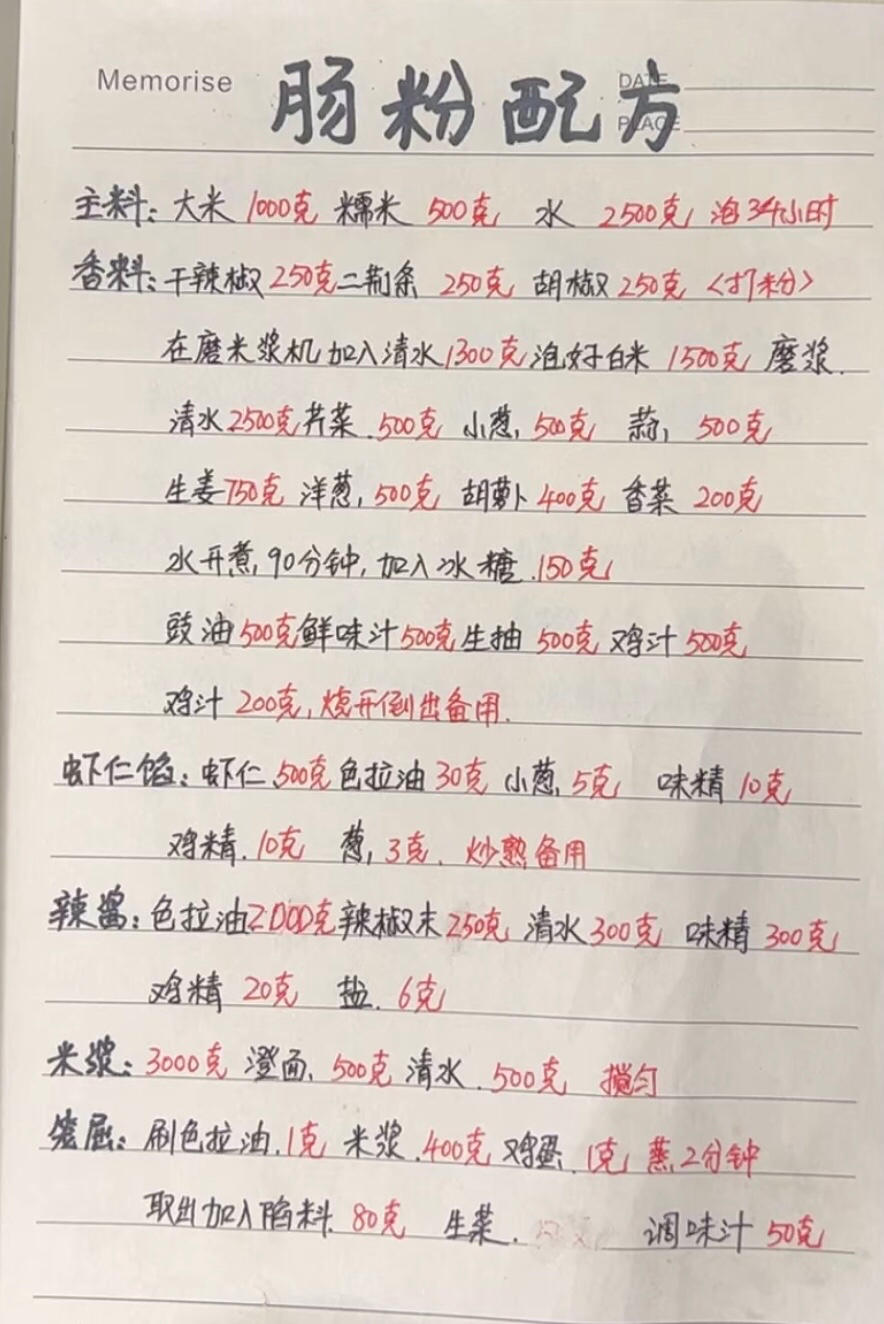 Memorise
DATE
PLACE
肠粉配方
主料：大米 1000克 糯米 500克 水 2500克 泡34小时
香料：干辣椒250克二荆条 250克 胡椒250克〈打粉〉
在磨米浆机加入清水1300克泡好白米 1500克 磨浆.
清水2500克芹菜.500克 小葱,500克 蒜, 500克
生姜750克 洋葱,500克 胡萝卜400克 香菜 200克
水开煮,90分钟,加入冰糖.150克
豉油500克鲜味汁500克生抽 500克 鸡汁500克
鸡汁 200克,烧开倒出备用.
虾仁馅：虾仁.500克色拉油30克 小葱,5克 味精10克
鸡精.10克 葱,3克. 炒熟备用
辣酱：色拉油2000克辣椒末250克 清水300克 味精 300克
鸡精 20克 盐. 6克
米浆：3000克 澄面、500克 清水.500克 搅匀
笼屉：刷色拉油.1克 米浆.400克 鸡蛋.1克 蒸2分钟
取出加入馅料.80克 生菜. 调味汁 50克